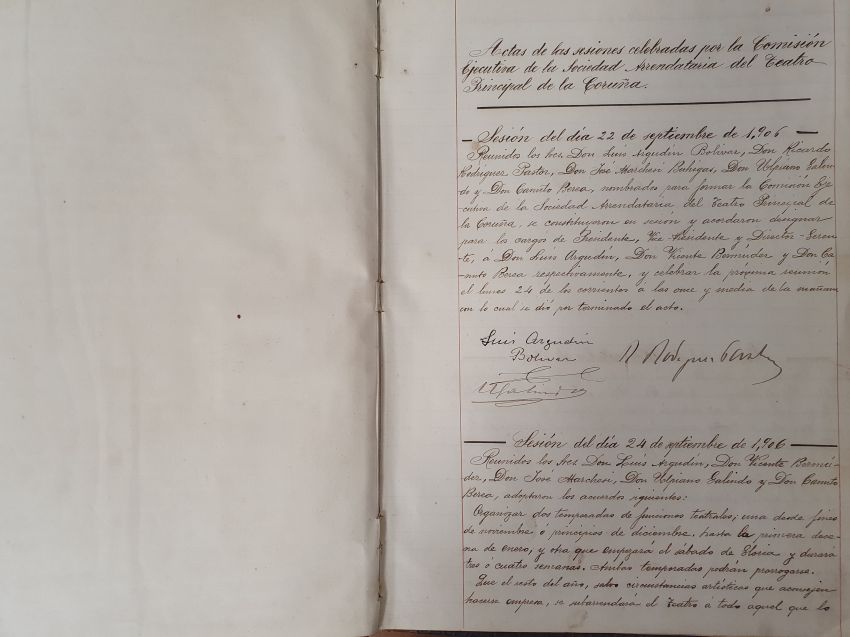 Actas de las sesiones celebradas por la Comisión
Ejecutiva de la Sociedad Arrendataria del Teatro
Principal de la Coruña.
Sesión del día 22 de septiembre de 1,906
Reunidos los Sres. Don Luis Argudín Bolívar, Don Ricardo
Rodríguez Pastor, Don José Marchesi Buhigas, Don Ulpiano Galin-
do y Don Camilo Berea, nombrados para formar la Comisión Eje-
-cutiva de la Sociedad Arrendataria del Teatro Principal de
la Coruña, se constituyeron en sesión y acordaron designar
para los cargos de Presidente, Vice-Presidente y Director-Geren-
te, á Don Luis Argudín, Don Vicente Bermúdez y Don Ca-
-milo Berea respectivamente, y celebrar la próxima reunión
el lunes 24 de los corrientes á las once y media de la mañana
con lo cual se dió por terminado el acto.
Luis Argudin
Bolivar
R Rodriguez Pastor
UGalindo
Sesión del día 24 de septiembre de 1,906
Reunidos los Sres. Don Luis Argudín, Don Vicente Bermú-
dez, Don José Marchesi, Don Ulpiano Galindo y Don Camilo
Berea, adoptaron los acuerdos siguientes:
Organizar dos temporadas de funciones teatrales; una desde fines
de noviembre ó principios de diciembre hasta la primera dece-
na de enero, y otra que empezará el sábado de Gloria y durará
tres ó cuatro semanas. Ambas temporadas podrán prorrogarse.
Que el resto del año, salvo circunstancias artísticas que aconsejen
hacerse empresa, se subarrendará el Teatro á todo aquel que lo